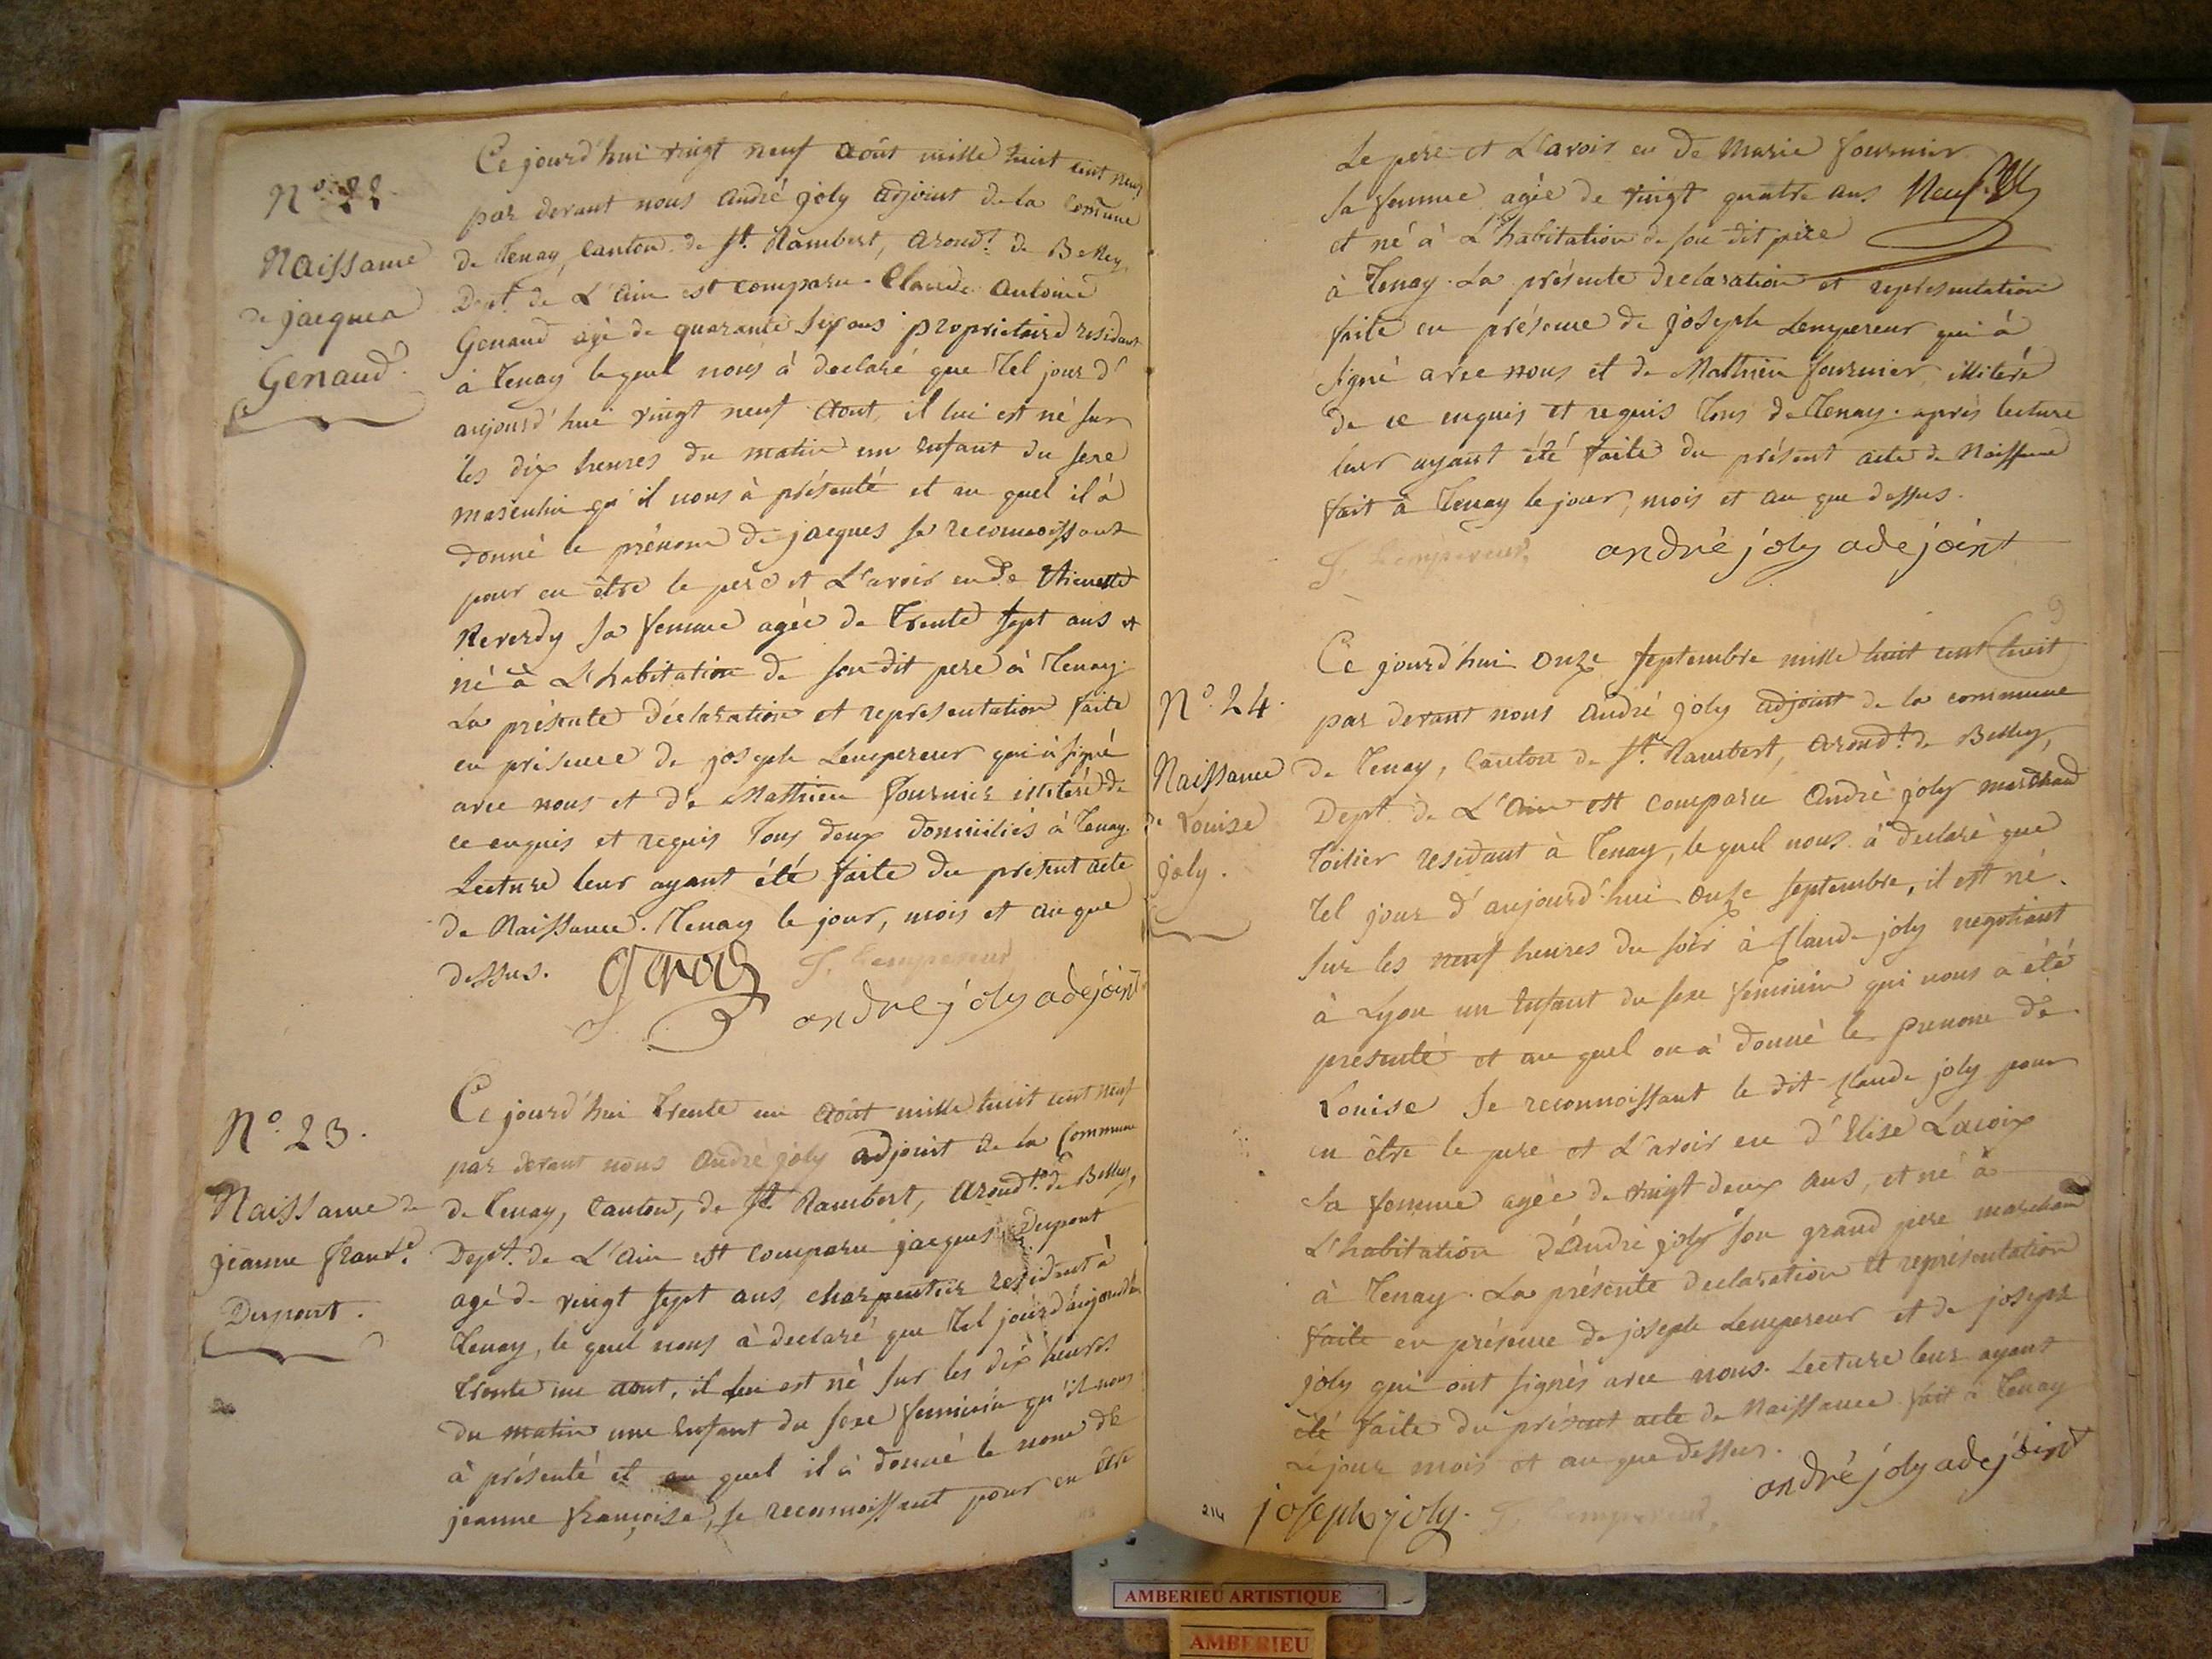 N.º 22.
Naissance
de jacques
Genaud.
Ce jourd'hui vingt neuf Août mille huit cent neuf
par devant nous André joly adjoint de la Commune
de Tenay, Canton de St. Rambert, arondt. de Belley,
Dept. de L'Ain est comparu Claude Antoine
Genaud agé de quarante six ans proprietaire residant
à Tenay lequel nous à declaré que Tel jour d'
aujourd'hui vingt neuf Aout, il lui est né sur
les dix heures du matin un enfant du sexe
masculin qu'il nous à présenté et au quel il à
donné le prénom de jacques se reconnoissant
pour en être le pere et L'avoir eu de
Reverdy sa femme agée de Trente sept ans et
né à L'habitation de son dit pere à Tenay.
La présente déclaration et representation faite
en présence de joseph Lempereur qui à signé
avec nous et de Mathieu Fournier illiteré de
ce enquis et requis Tous deux domiciliés à Tenay.
Lecture leur ayant été faite du présent acte
de Naissance. Tenay le jour, mois et an que
dessus.
J. Lempereur
andré joly adejoint
N.º 23.
Naissance de
jeanne Franse.
Dupont.
Ce jourd'hui Trente un Août mille huit cent neuf
par devant nous André joly adjoint de la Commune
de Tenay, Canton, de St. Rambert, arondt. de Belley,
Dept. de L'Ain est comparu jacques Dupont
agé de vingt sept ans, charpentier residant à
Tenay, le quel nous à declaré que Tel jour d'aujourd'hui
Trente un aout, il lui est né sur les dix heures
du matin une enfant du sexe feminin qu'il nous
à présenté et au quel il à donné le nom de
jeanne Françoise, se reconnoissant pour en être
Le pere et L'avoir eu de Marie fournier
sa femme agée de vingt quatre ans
et né à L'habitation de son dit père
à Tenay. La présente declaration et representation
faite en présence de joseph Lempereur qui à
signé avec nous et de Mathieu fournier illiteré
de ce enquis et requis Tous de Tenay. après lecture
leur ayant été faite du présent acte de Naissance
fait à Tenay le jour, mois et an que dessus.
J. Lempereur andré joly adejoint
N.º 24.
Naissance
de Louise
joly.
Ce jourd'hui onze septembre mille huit cent huit 9
par devant nous André joly adjoint de la commune
de Tenay, Canton de St. Rambert, arondt. de Belley,
Dept. de L'Ain est comparu André joly marchand
Toilier residant à Tenay, le quel nous à declaré que
Tel jour d'aujourd'hui onze septembre, il est né
sur les neuf heures du soir à Claude joly negotiant
à Lyon un enfant du sexe feminin qui nous a été
presenté et au quel on à donné le prenom de
Louise se reconnoissant le dit Claude joly pour
en être le pere et L'avoir eu d'Elise Lacroix
sa femme agée de vingt deux ans, et né à
L'habitation d'André joly son grand pere marchand
à Tenay. La présente declaration et représentation
faite en présence de joseph Lempereur et de joseph
joly qui ont signés avec nous. Lecture leur ayant
été faite du présent acte de Naissance fait à Tenay
Le jour mois et an que dessus.
andré joly adejoint
214 joseph joly. J. Lempereur
AMBERIEU ARTISTIQUE
AMBERIEU